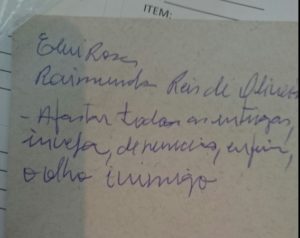 ITEM:
Edni Rosa
Raimunda Reis de Oliveira
- Afastar todas as intrigas,
inveja, denuncias,
o olho inimigo